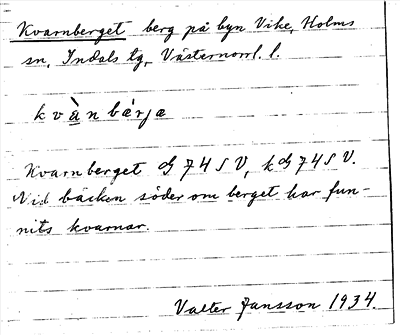 Kvarnberget berg på byn Vike, Holms
sn, Indals tg, Västernorrl. l.
kvànbárja
Kvarnberget G 74 S V, kG 74 S V.
Vid bäcken söder om berget har fun-
nits kvarnar.
Valter Jansson 1934.